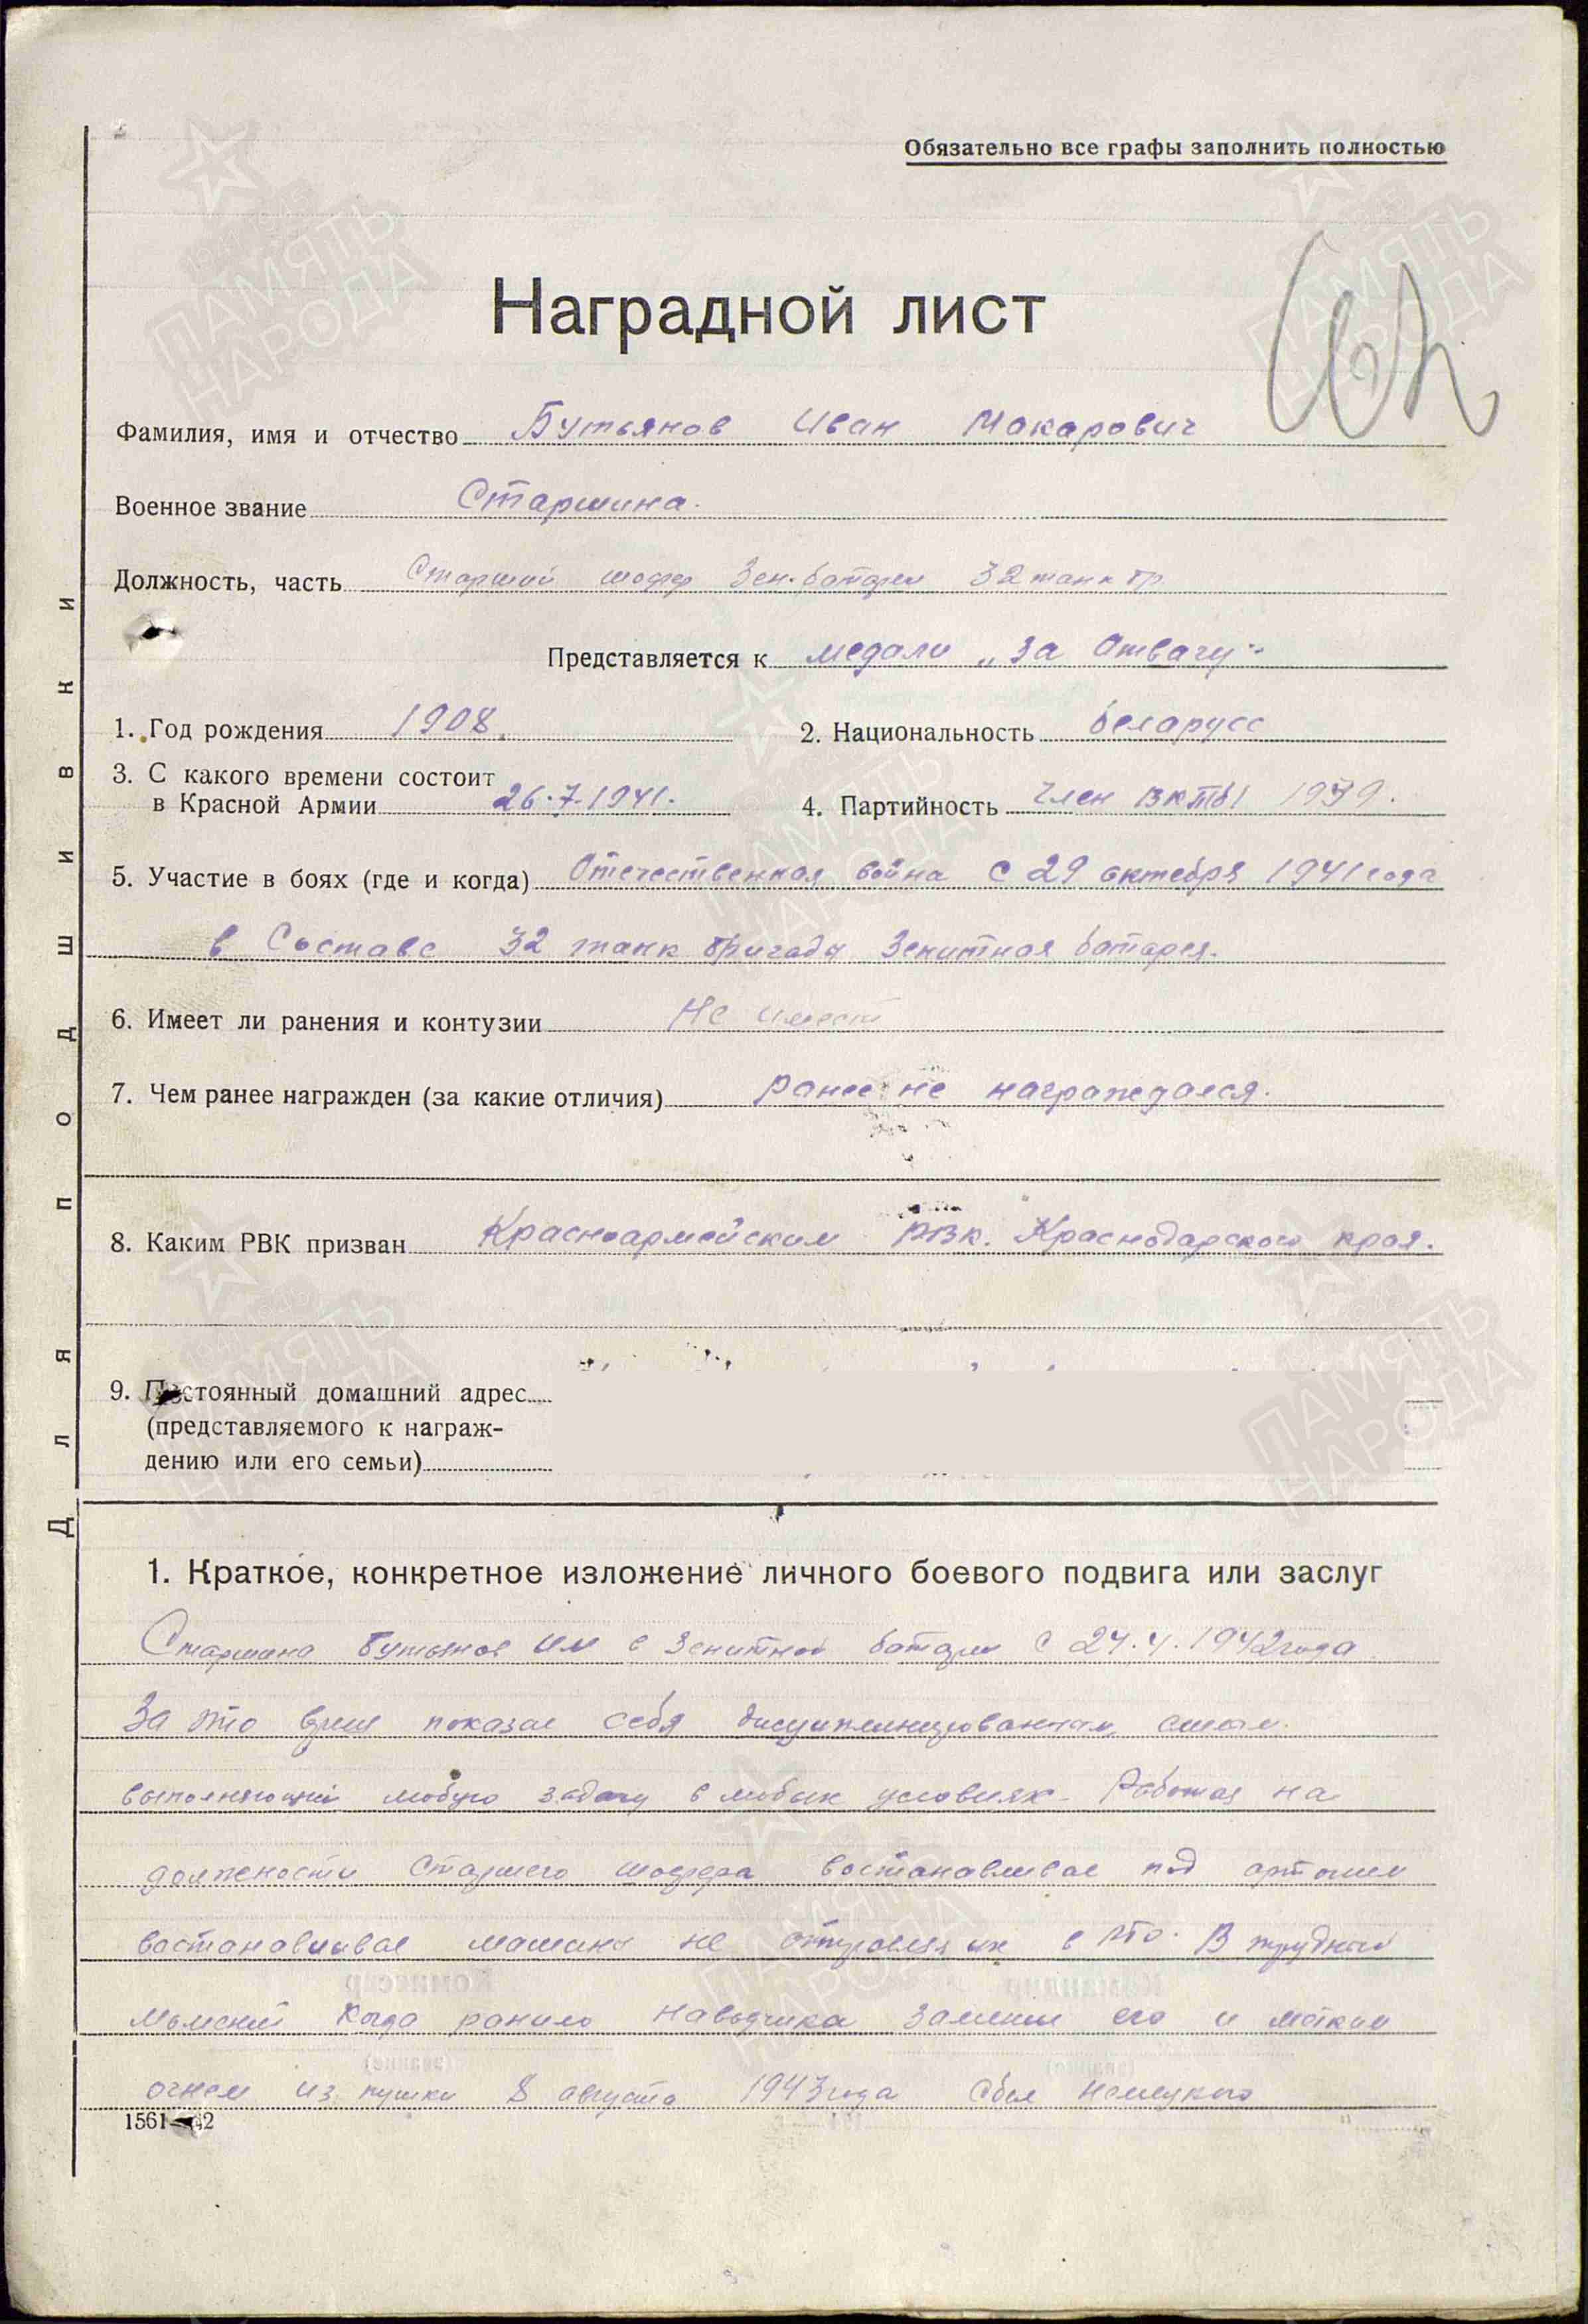 Обязательно все графы заполнить полностью
Наградной лист
Фамилия, имя и отчество Бутьянов Иван Макарович
Военное звание Старшина.
Должность, часть Старший шофер Зен. батареи 32 танк бр
Представляется к медали „За Отвагу"
1. Год рождения 1908.
2. Национальность беларусс
3. С какого времени состоит
в Красной Армии 26.7.1941.
4. Партийность Член ВКПб 1939.
5. Участие в боях (где и когда) Отечественная война с 29 октября 1941 года
в Составе 32 танк бригады Зенитная батарея.
6. Имеет ли ранения и контузии Не имеет
7. Чем ранее награжден (за какие отличия) ранее не награждался.
8. Каким РВК призван Красноармейским РВК. Краснодарского края.
9. Постоянный домашний адрес
(представляемого к награж-
дению или его семьи)
1. Краткое, конкретное изложение личного боевого подвига или заслуг
Старшина Бутьянов ИМ в Зенитной батареи с 24.4.1942 года
За это время показал себя дисциплинированным, смелым.
выполняющий любую задачу в любых условиях. Работая на
должности Старшего шофера востанавливал под артогнем
востанавливал машины не отправляя их в РТО. В трудный
момент когда ранило наводчика заменил его и метким
огнем из пушки 8 августа 1943 года сбил немецкого
1561—42
Для подшивки
ПАМЯТЬ НАРОДА